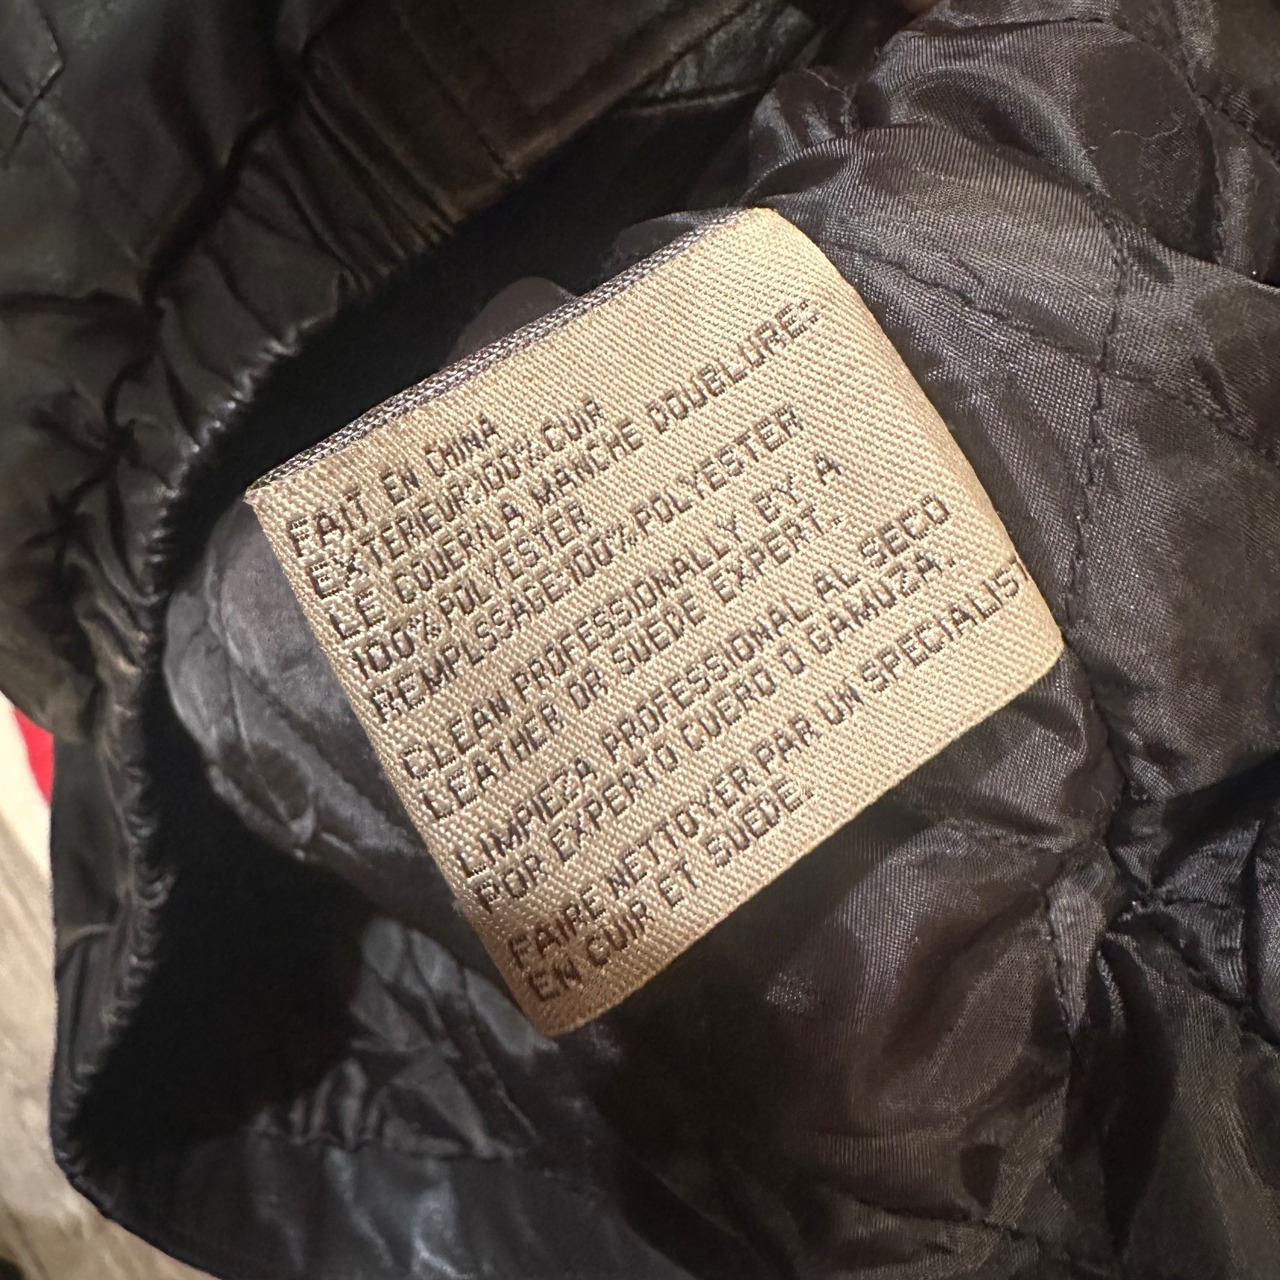 FAIT EN CHINA
EXTERIEUR:100% CUIR
LE COUER/LA MANCHE DOUBLURE:
100% POLYESTER
REMPLSSAGE:100% POLYESTER
CLEAN PROFESSIONALLY BY A
LEATHER OR SUEDE EXPERT.
LIMPIEZA PROFESSIONAL AL SECO
POR EXPERTO CUERO O GAMUZA.
FAIRE NETTOYER PAR UN SPECIALIST
EN CUIR ET SUEDE.